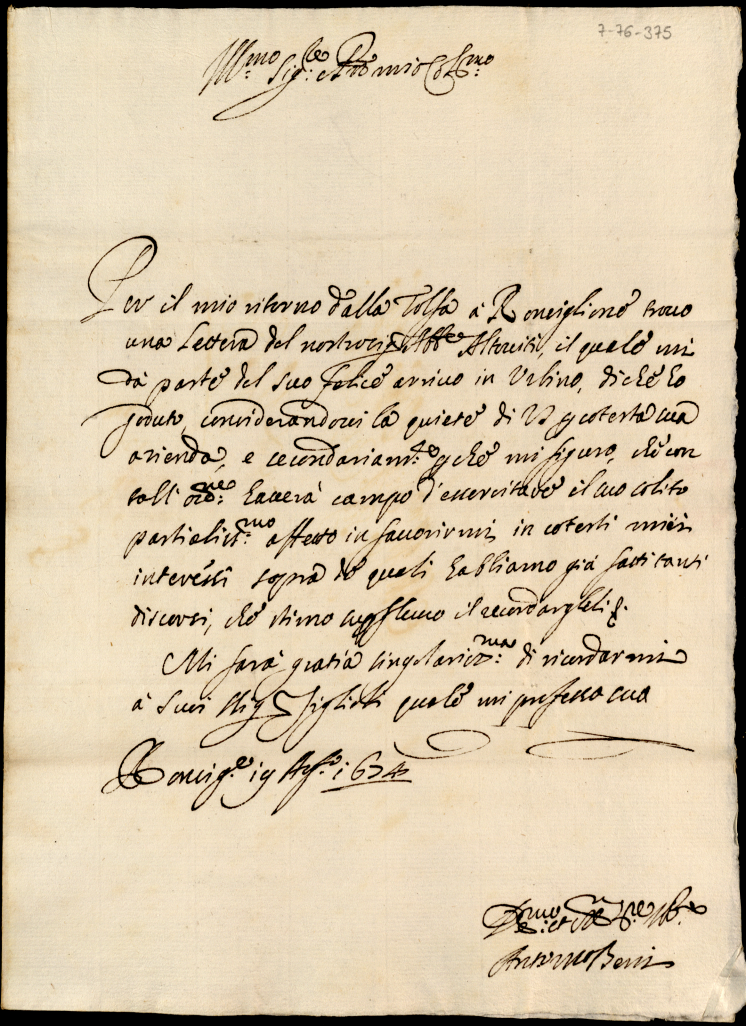 7-76-375
Ill.mo Sig.re e P.ron mio Col.mo
Per il mio ritorno dalla Tolfa à Ronciglione trovo
una Lettera del nostro Sig. Abb.e Altoviti, il quale mi
dà parte del suo felice arrivo in Urbino, di che ho
goduto, considerandovi la quiete di VS p cotesta sua
azienda, e secondariam.te p che mi figuro, che con
tall' ord.ne haverà campo d'essercitare il suo solito
partialiss.mo affetto in favorirmi in cotesti miei
interessi sopra de quali habbiamo già fatti tanti
discorsi, che stimo superfluo il recordargleli
Mi farà gratia singolariss.ma di ricordarmi
à suoi Sig.ri figlioli quale mi professo sua
Roncig.ne 19 Ag.to 1674
D.mo et
Antonio Beni